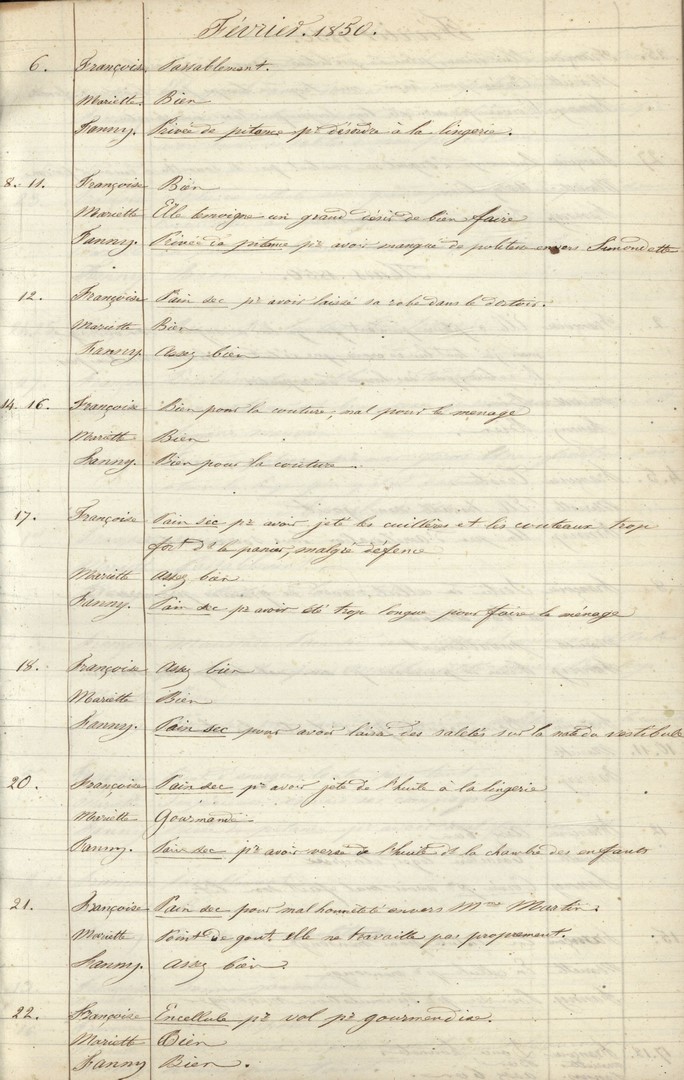 Février. 1850.
6. Françoise Passablement.
Mariette. Bien
Fanny. Privée de pitance pr désordre à la lingerie.
8. 11. Françoise Bien
Mariette Elle temoigne un grand désir de bien faire
Fanny. Privée de pitance pr avoir manqué de politesse envers Simondette
12. Françoise Pain sec pr avoir laissé sa robe dans le dortoir.
Mariette Bien
Fanny Assez bien
14. 16. Françoise Bien pour la couture, mal pour le menage
Mariette Bien
Fanny. Bien pour la couture.
17. Françoise Pain sec pr avoir jeté les cuillères et les couteaux trop
fort ds le panier, malgré défence
Mariette Assez bien
Fanny. Pain sec pr avoir été trop longue pour faire le ménage
18. Françoise Assez bien
Mariette Bien
Fanny. Pain sec pour avoir laissé des saletés sur la natte du vestibule
20. Françoise Pain sec pr avoir jeté de l'huile à la lingerie
Mariette Gourmande
Fanny. Pain sec pr avoir versé de l'huile ds la chambre des enfants
21. Françoise Pain sec pour malhonnêteté envers Mme Martin.
Mariette Point de gout, elle ne travaille pas proprement.
Fanny. Assez bien.
22. Françoise Encellulée pr vol pr gourmendise.
Mariette Bien
Fanny Bien.